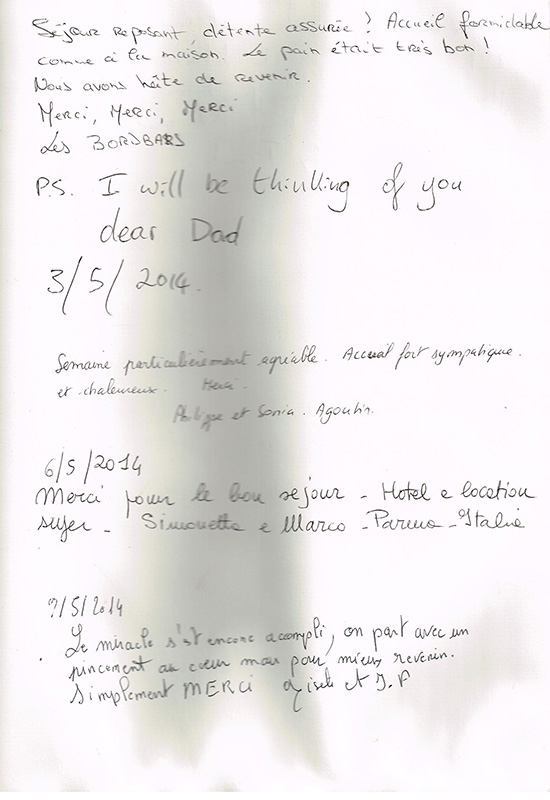 Séjour reposant, détente assurée ! Accueil formidable
comme à la maison. Le pain était très bon !
Nous avons hâte de revenir.
Merci, Merci, Merci
Les BORDBARS
P.S. I will be thinking of you
dear Dad
3/5/2014.
Semaine particulièrement agréable. Accueil fort sympatique.
et chaleureux. Merci.
Philippe et Sonia. Agoutin.
6/5/2014
Merci pour le bon sejour - Hotel e location
super - Simonetta e Marco - Parma - Italie
7/5/2014
Le miracle s'est encore accompli, on part avec un
pincement au cœur mais pour mieux revenir.
Simplement MERCI et J.P